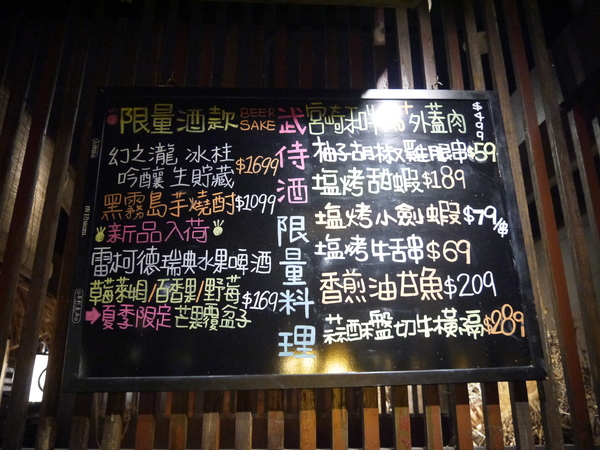 限量酒款 BEER SAKE
幻之瀧 冰柱
吟釀 生貯藏 $1699
黑霧島芋燒酎 $1099
新品入荷
雷柯德瑞典水果啤酒
草莓萊姆/百香果/野莓 $169
夏季限定 芒果覆盆子
武侍酒 限量料理
宮崎和牛 外蓋肉 $499
柚子胡椒雞腿串$59
塩烤甜蝦$189
塩烤小劍蝦$79/串
塩烤牛舌串$69
香煎油甘魚$209
盤切牛橫膈$289